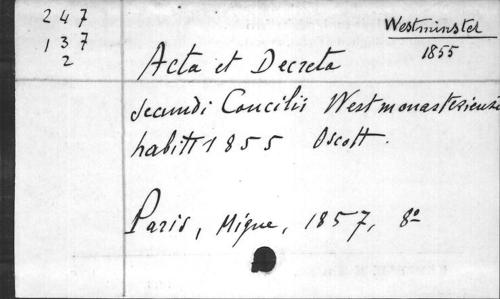 247
137
2
Westminster
1855
Acta et Decreta
secundi Concilii Westmonasteriensis
habiti 1855 Oscott.
Paris, Migne, 1857, 8º